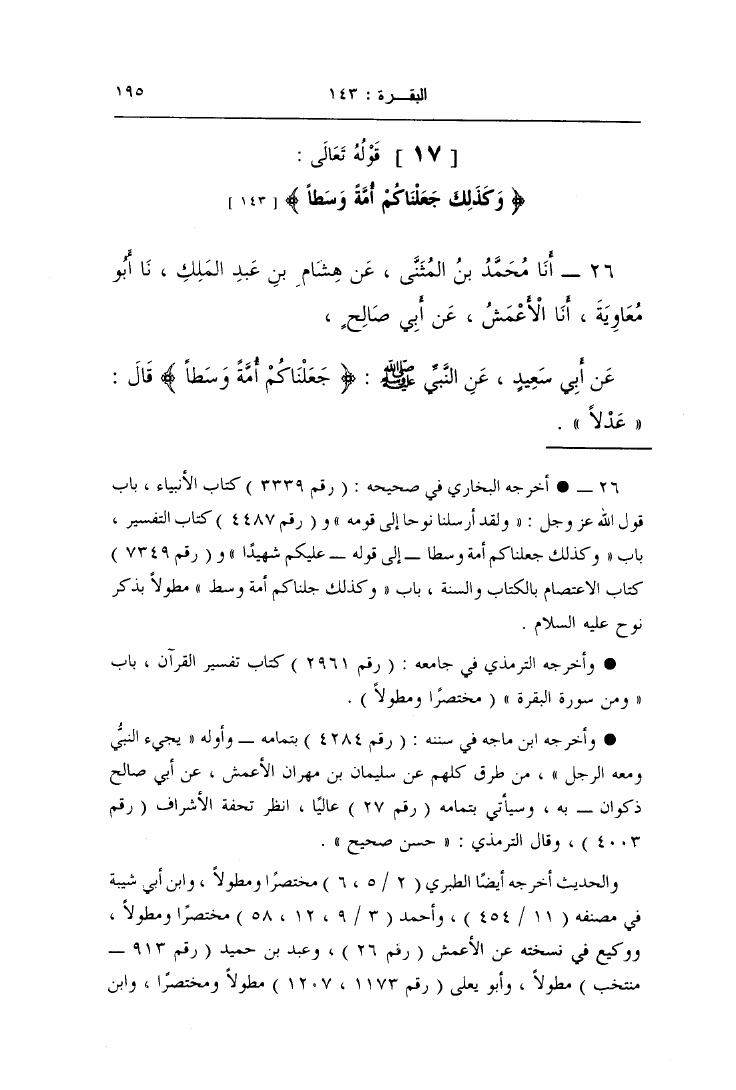 البقــرة : ١٤٣
١٩٥
[ ١٧ ] قَوْلُهُ تَعَالَى :
﴿ وَكَذَلِكَ جَعَلْنَاكُمْ أُمَّةً وَسَطاً ﴾ [ ١٤٣ ]
٢٦ ــ أَنَا مُحَمَّدُ بنُ المُثَنَّى ، عَن هِشَامِ بنِ عَبدِ المَلِكِ ، نَا أَبُو
مُعَاوِيَةَ ، أَنَا الْأَعْمَشُ ، عَن أَبِي صَالِحٍ ،
عَن أَبِي سَعِيدٍ ، عَنِ النَّبِيِّ ﷺ : ﴿ جَعَلْنَاكُمْ أُمَّةً وَسَطاً ﴾ قَالَ :
« عَدْلاً » .
٢٦ ــ ● أخرجه البخاري في صحيحه : ( رقم ٣٣٣٩ ) كتاب الأنبياء ، باب
قول الله عز وجل : « ولقد أرسلنا نوحا إلى قومه » و ( رقم ٤٤٨٧ ) كتاب التفسير ،
باب « وكذلك جعلناكم أمة وسطا ــ إلى قوله ــ عليكم شهيدًا » و ( رقم ٧٣٤٩ )
كتاب الاعتصام بالكتاب والسنة ، باب « وكذلك جلناكم أمة وسط » مطولاً بذكر
نوح عليه السلام .
● وأخرجه الترمذي في جامعه : ( رقم ٢٩٦١ ) كتاب تفسير القرآن ، باب
« ومن سورة البقرة » ( مختصرًا ومطولاً ) .
● وأخرجه ابن ماجه في سننه : ( رقم ٤٢٨٤ ) بتمامه ــ وأوله « يجيء النبيُّ
ومعه الرجل » ، من طرق كلهم عن سليمان بن مهران الأعمش ، عن أبي صالح
ذكوان ــ به ، وسيأتي بتمامه ( رقم ٢٧ ) عاليًا ، انظر تحفة الأشراف ( رقم
٤٠٠٣ ) ، وقال الترمذي : « حسن صحيح » .
والحديث أخرجه أيضًا الطبري ( ٢ / ٥ ، ٦ ) مختصرًا ومطولاً ، وابن أبي شيبة
في مصنفه ( ١١ / ٤٥٤ ) ، وأحمد ( ٣ / ٩ ، ١٢ ، ٥٨ ) مختصرًا ومطولاً ،
ووكيع في نسخته عن الأعمش ( رقم ٢٦ ) ، وعبد بن حميد ( رقم ٩١٣ ــ
منتخب ) مطولاً ، وأبو يعلى ( رقم ١١٧٣ ، ١٢٠٧ ) مطولاً ومختصرًا ، وابن